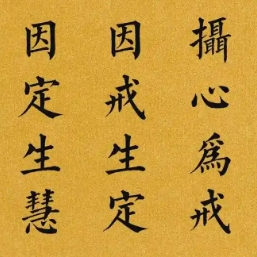 攝心為戒
因戒生定
因定生慧